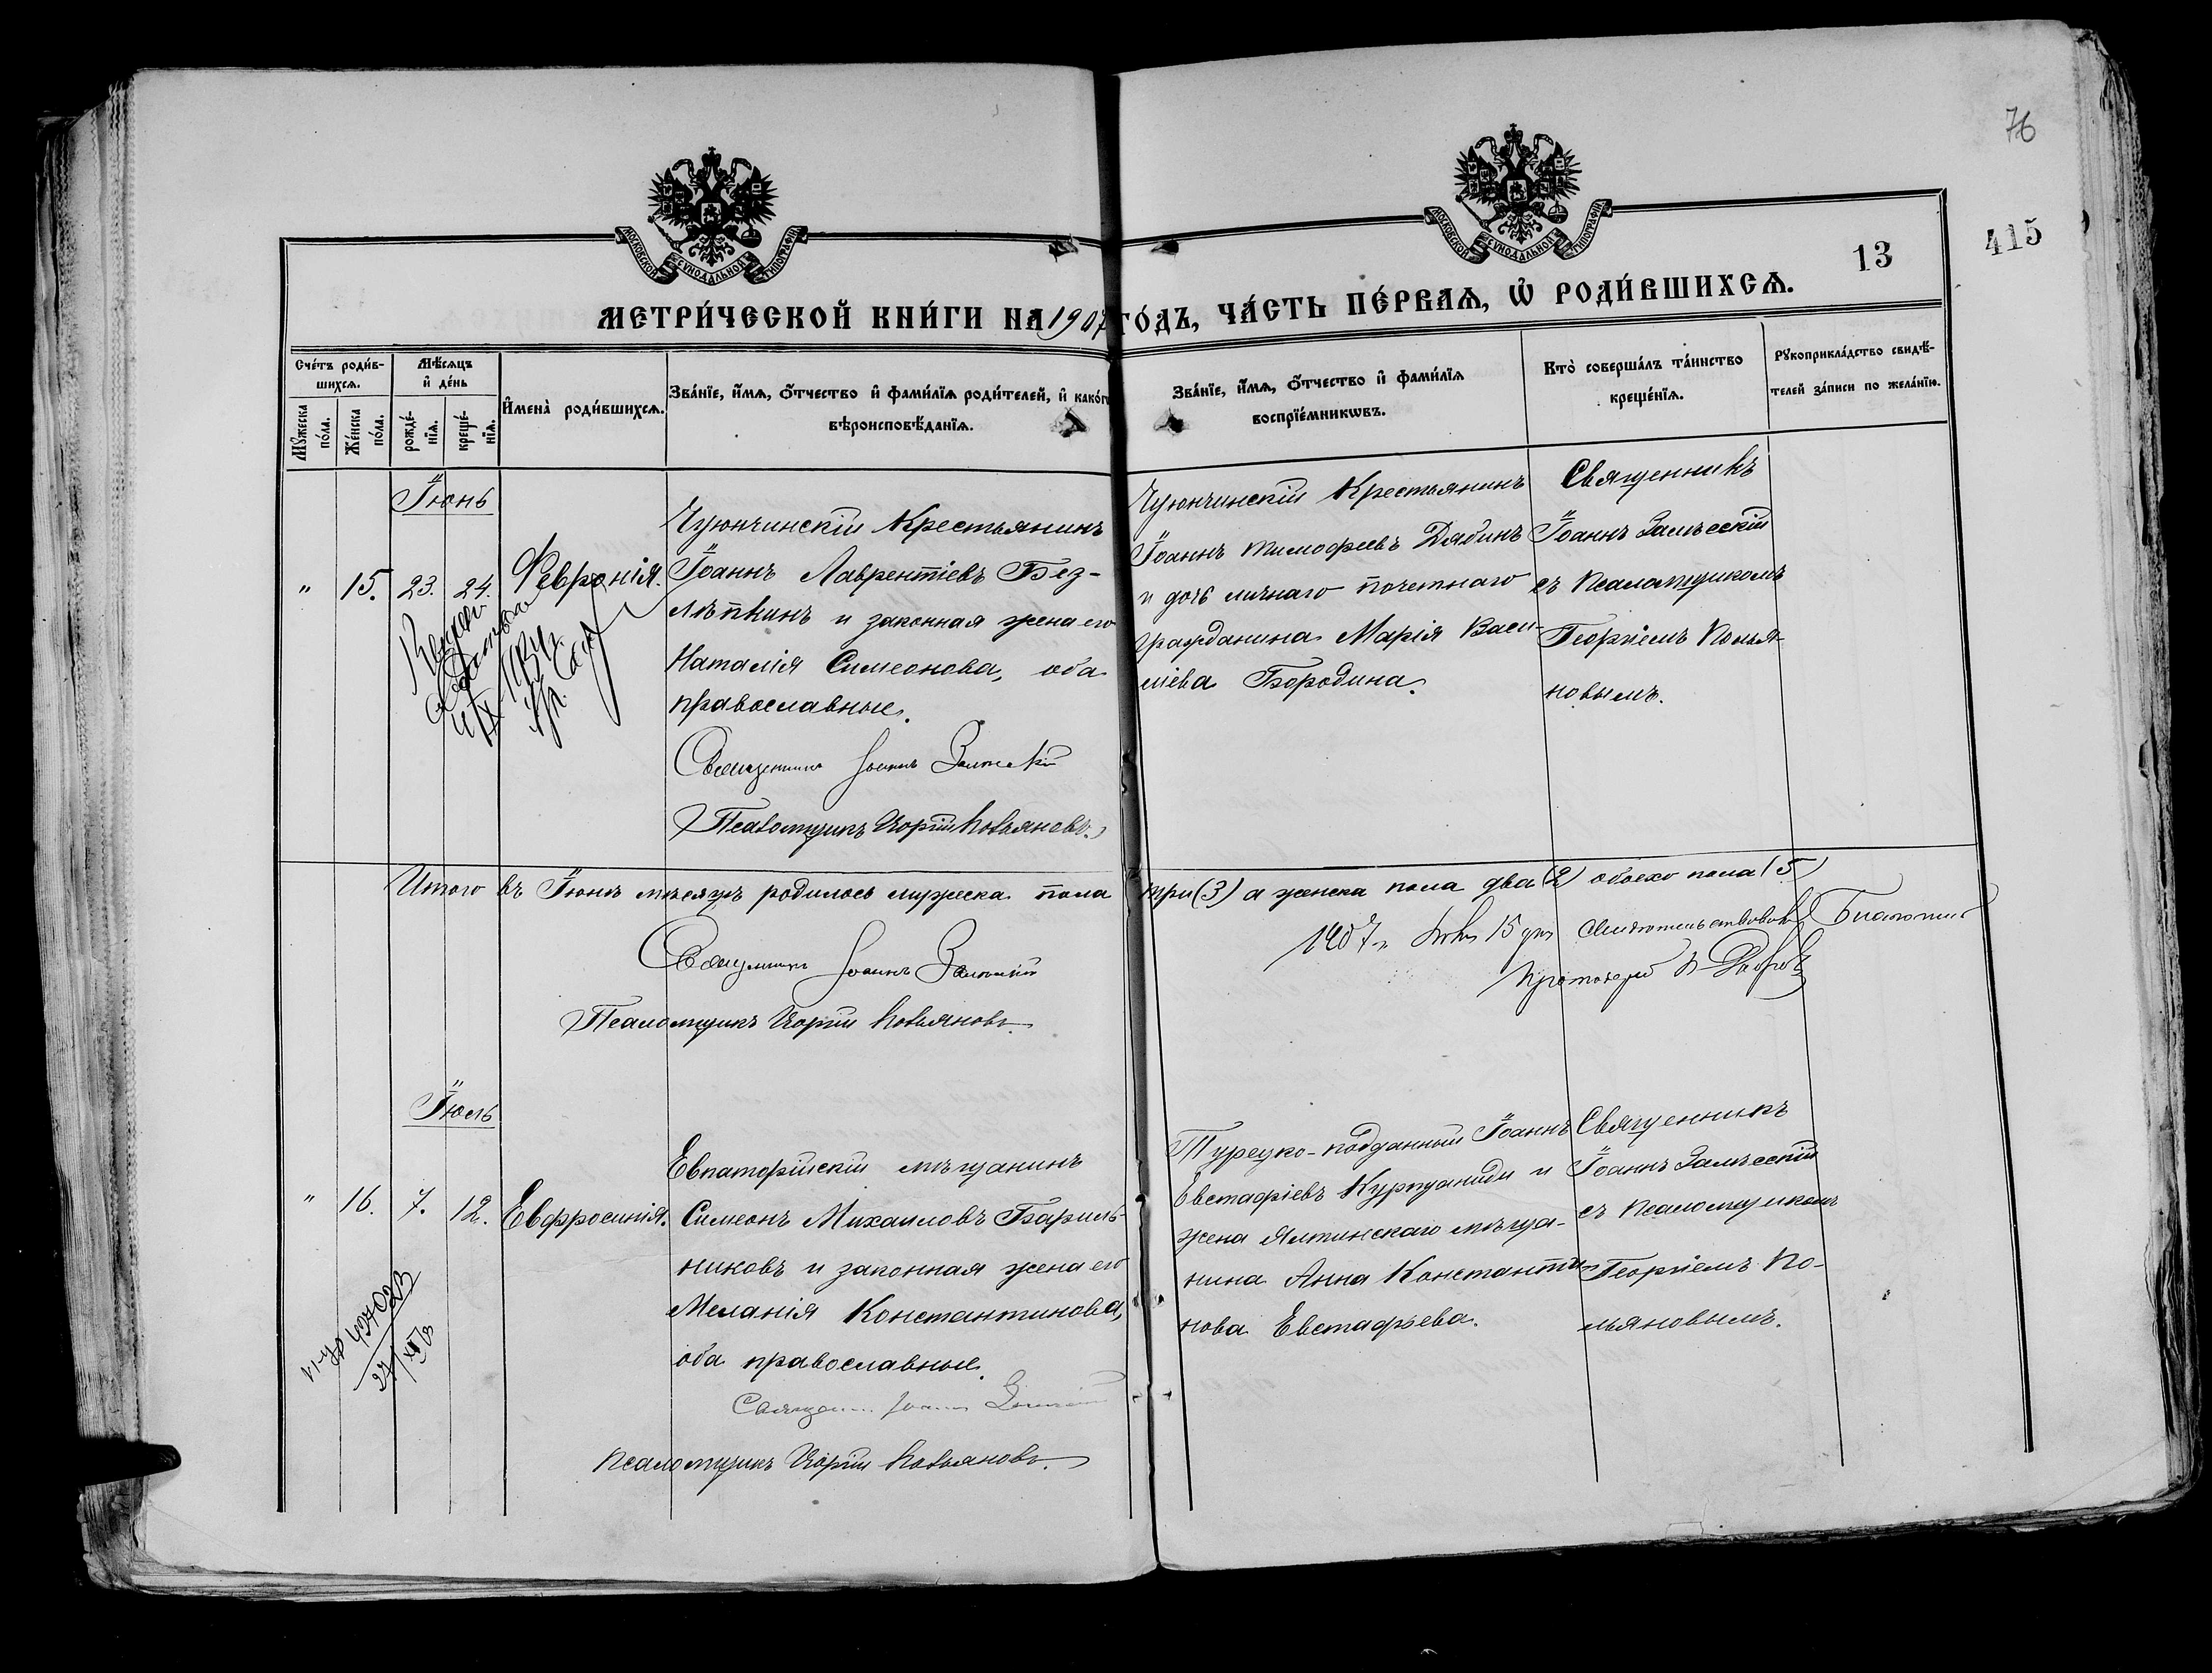 76
415
13
МОСКОВСКОЙ СУНОДАЛЬНОЙ ТИПОГРАФІИ
МОСКОВСКОЙ СУНОДАЛЬНОЙ ТИПОГРАФІИ
МЕТРИ́ЧЕСКОЙ КНИ́ГИ НА 1907 ГО́ДЪ, ЧА́СТЬ ПЕ́РВАѦ, Ѡ҆ РОДИ́ВШИХСѦ.
Сче́тъ роди́в-
шихсѧ.
Мꙋ́жеска по́ла.
Же́нска по́ла.
Мѣ́сѧцъ
и҆ де́нь
рожде́-
нїѧ.
креще́-
нїѧ.
И҆мена̀ роди́вшихсѧ.
Зва́нїе, и҆́мѧ, ѻ҆́тчество и҆ фами́лїѧ роди́телей, и҆ како́гѡ
вѣроисповѣ́данїѧ.
Зва́нїе, и҆́мѧ, ѻ҆́тчество и҆ фами́лїѧ
воспрїе́мникѡвъ.
Кто̀ соверша́лъ та́инство
креще́нїѧ.
Рꙋкоприкла́дство свидѣ́-
телей за́писи по жела́нїю.
Іюнь
" 15. 23. 24. Февронія.
Чуюнчинскій Крестьянинъ
Іоаннъ Лаврентіевъ Без-
лѣпкинъ и законная жена его
Наталія Симеонова, оба
православные.
Священникъ Іоаннъ Залѣсскій
Псаломщикъ Георгій Польяновъ
Чуюнчинскій Крестьянинъ
Іоаннъ Тимофеевъ Дядинъ
и дочь личнаго почетнаго
гражданина Марія Васи-
ліева Бородина.
Священникъ
Іоаннъ Залѣсскій
съ Псаломщикомъ
Георгіемъ Полья-
новымъ.
Итого въ Іюнѣ мѣсяцѣ родилось мужеска пола три (3) а женска пола два (2) обоего пола (5)
Священникъ Іоаннъ Залѣсскій
Псаломщикъ Георгій Польяновъ
1907 г. 15 дня свидѣтельствовалъ Благочин
Протоіерей
Іюль
" 16. 7. 12. Евфросинія.
Евпаторійскій мѣщанинъ
Симеонъ Михаиловъ Бариль-
никовъ и законная жена его
Меланія Константинова,
оба православные.
Священникъ Іоаннъ Залѣсскій
Псаломщикъ Георгій Польяновъ
Турецко-подданный Іоаннъ
Евстафіевъ Курпуаниди и
жена Ялтинскаго мѣща-
нина Анна Константи-
нова Евстафьева.
Священникъ
Іоаннъ Залѣсскій
съ Псаломщикомъ
Георгіемъ По-
льяновымъ.